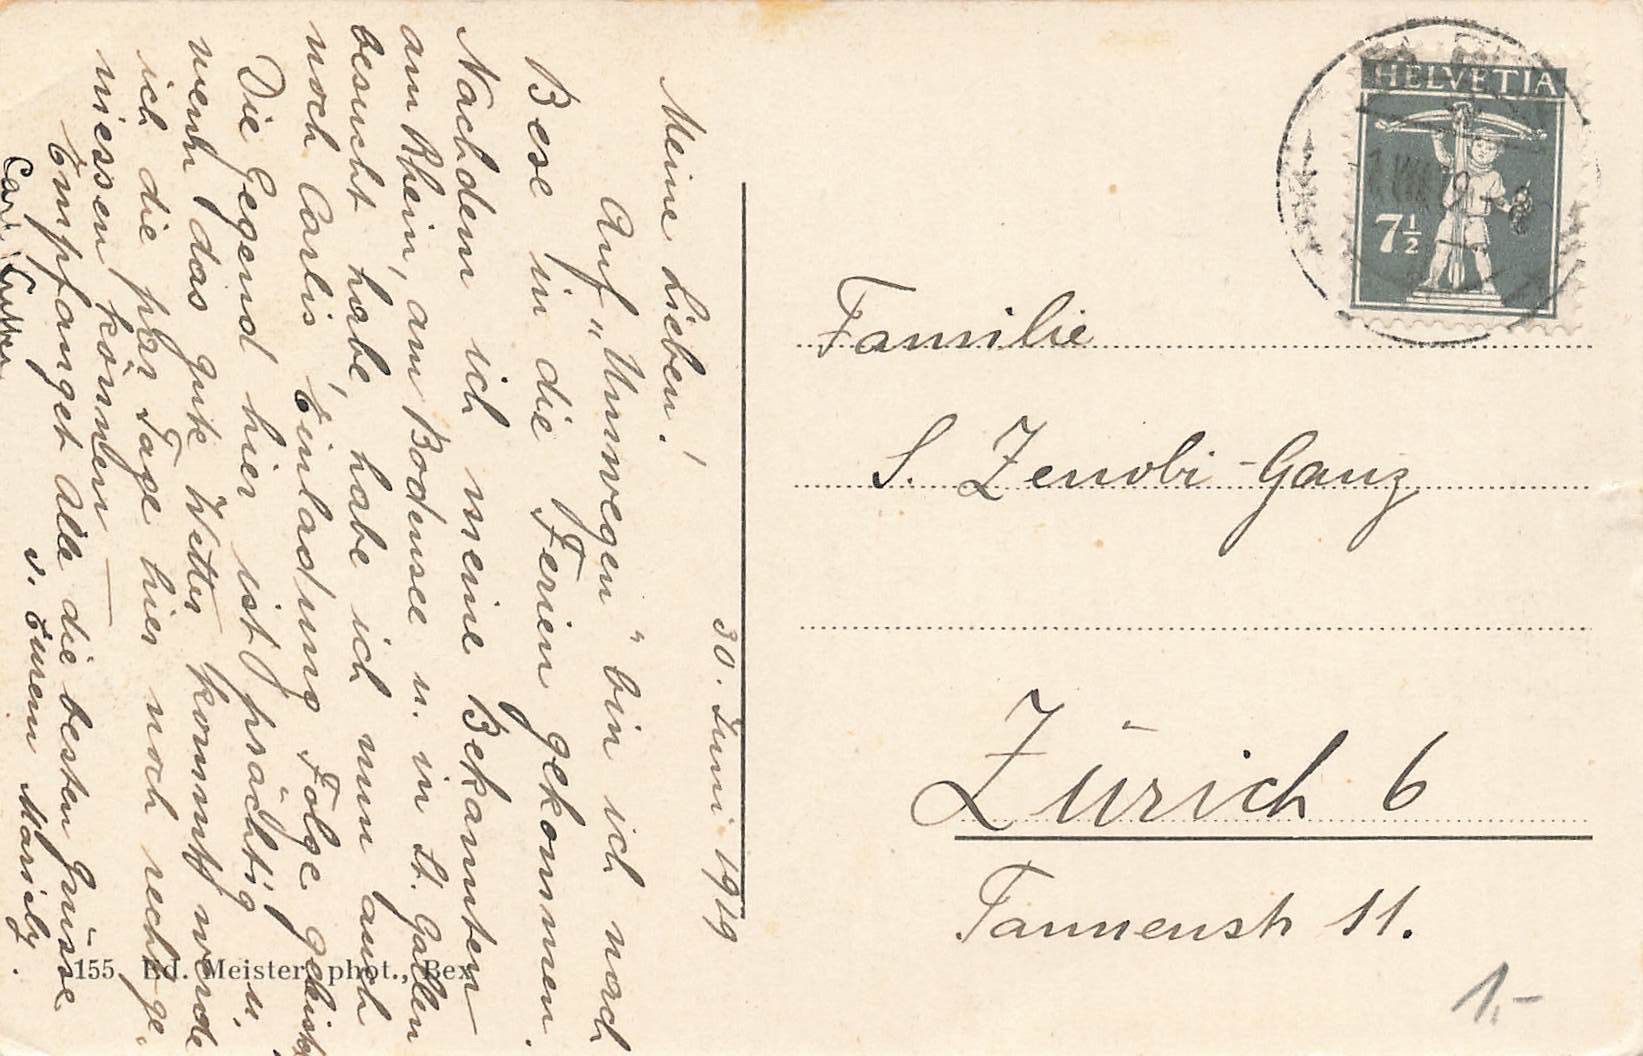 30. Juni 1919
Meine Lieben!
Auf „Umwegen" bin ich nach
Bex in die Ferien gekommen.
Nachdem ich meine Bekannten
am Rhein, am Bodensee u. in St. Gallen
besucht habe, habe ich nun auch
noch Carlis Einladung Folge geleistet
Die Gegend hier ist prächtig u.
wenn das gute Wetter kommt werde
ich die paar Tage hier noch recht ge-
niessen können —
Empfanget Alle die besten Grüsse
v. Eurem
Carl
HELVETIA
7½
Familie
S. Zenobi-Ganz
Zürich 6
Tannenstr 11.
155 Ed. Meister, phot., Bex
1.-